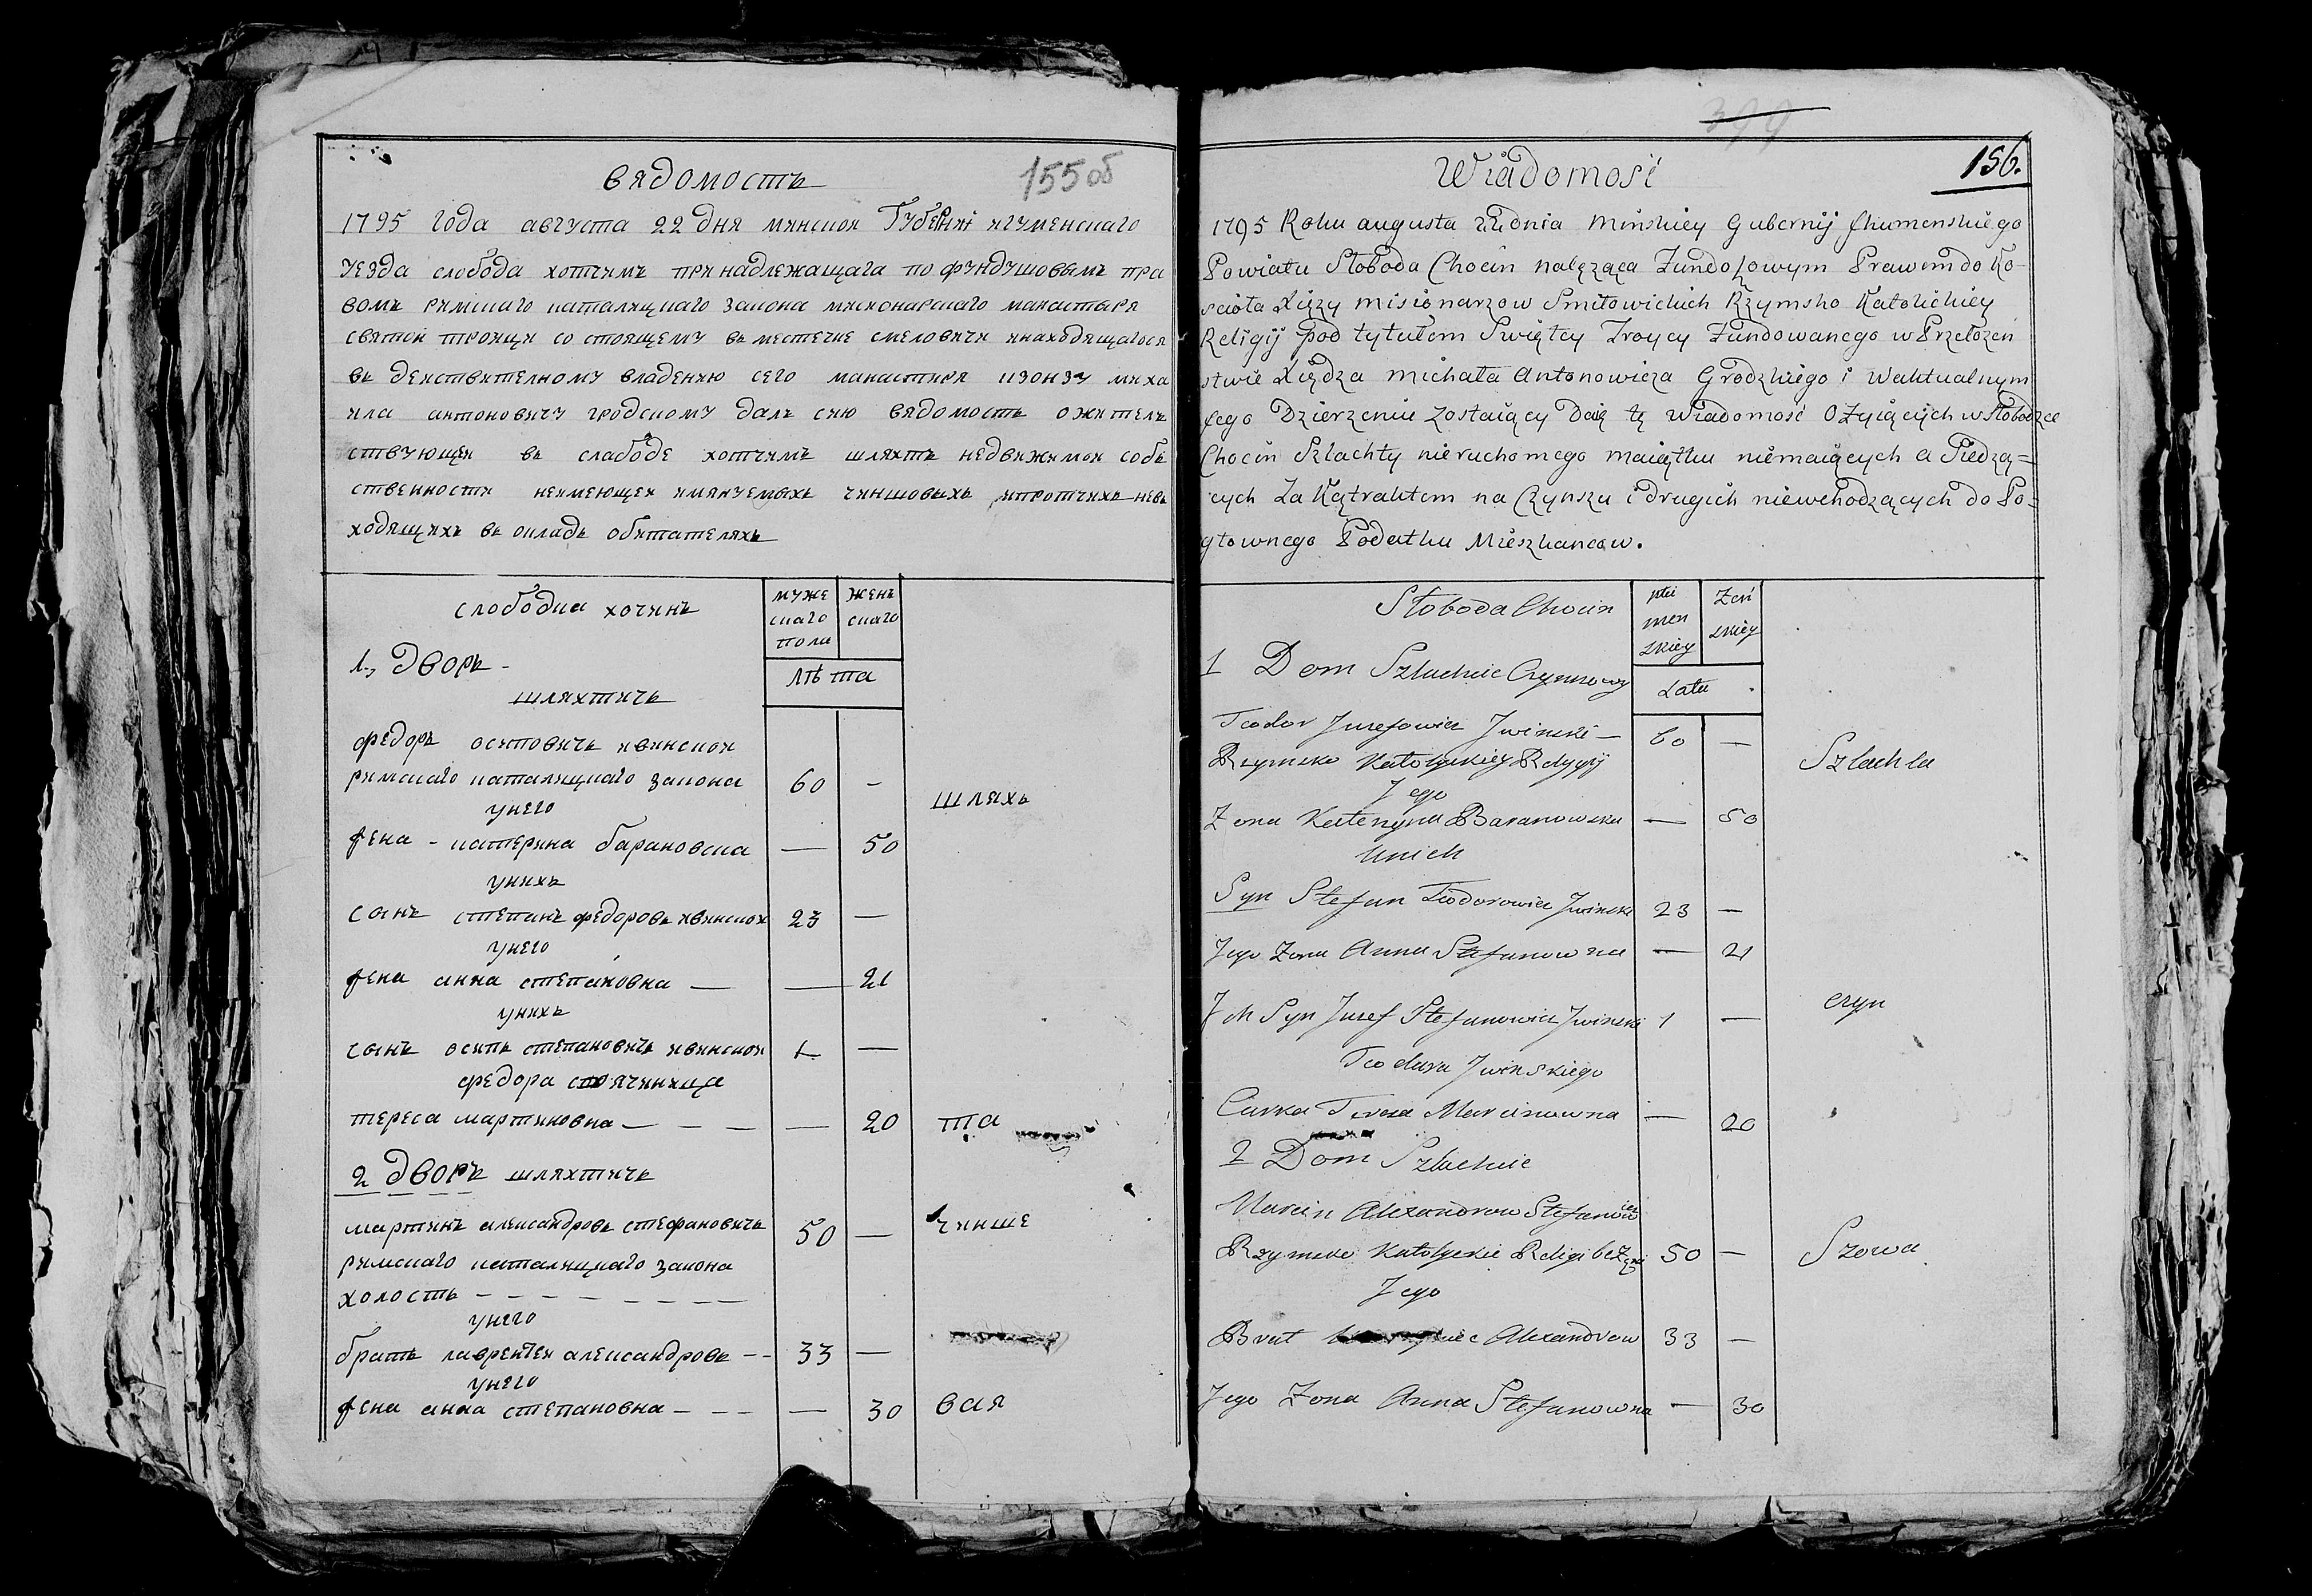 вядомость 155об
1795 года августа 22 дня минской Губерніи игуменскаго
уезда слобода хотчимъ принадлежащага по фундушовымъ пра
вомъ римскаго каталицкаго закона мисионарскаго манастыря
святой троицы состоящему въ местечке смеловичи инаходящагося
въ деиствителному владению сего манастиря изонзу миха
ила антоновичу гродскому далъ сию вядомость ожителъ
ствующеи въ слабоде хотчимъ шляхтъ недвижимои собъ
ственности неимеющеи имянуемыхъ чиншовыхъ ипротчихъ невъ
ходящихъ въ окладъ обитателяхъ
слободка хочинъ
муже
скаго
пола
женъ
скаго
лѣта
1, дворъ -
шляхтичъ
федоръ осиповичъ ивинскои
римскаго каталицкаго закона 60 -
унего
шляхъ
жена - катерина барановска — 50
унихъ
сынъ степанъ федоровъ ивинскои 23 —
унего
жена анна степановна — — 21
унихъ
сынъ осипъ степановичъ ивинскои 1 —
федора
тереса мартиновна — — — — — 20 та
2 дворъ шляхтичъ
мартинъ александровъ стефановичъ 50 — чинше
римскаго каталицкаго закона
холостъ — — — — — — —
унего
братъ лаврентеи александровъ — - 33 —
унего
жена анна степановна — — — — 30 вая
399
156.
Wiadomość
1795 Roku augusta 22 dnia Minskiey Gubernij Jhumenskiego
Powiatu Słoboda Chocin należąca Fundoszowym Prawem do Ko-
scioła Xięzy misionarzow Smiłowickich Rzymsko Katolickiey
Religij pod tytułem Swiętey Troycy Fundowanego w Przełozen
stwie Xiędza Michała Antonowicza Grodzkiego i Waktualnym
jego Dzierzeniu zostaiący Daię tę Wiadomość Ozyiących w Słobodzce
Chocin Szlachty nieruchomego maiątku niemaiących a Siedzą=
cych Za Kątraktem na Czynszu i drugich niewchodzących do Po-
głownego Podatku Mieszkancow.
Słoboda Chocin
płci
men
skiey
Zen
skiey
Lata
1 Dom Szlachcic Czynszowy
Teodor Jusefowicz Jwinski — 60 —
Rzymsko Katolyckiey Relygyi Szlachta
Jego
Zona Katerzyna Baranowska — 50
Unich
Syn Stefan Teodorowicz Jwinski 23 —
Jego Zona Anna Stefanowna — 21
Jch Syn Jusef Stefanowicz Jwinski 1 — czyn
Teodura Jwinskiego
Curka Teresa Marcinowna — 20
2 Dom Szlachcic
Marcin Alexandrow Stefanowicz
Rzymsko Katolyckie Religi bez 50 — Szowa
Jego
Brat Alexandrow 33 —
Jego Zona Anna Stefanowna — 30